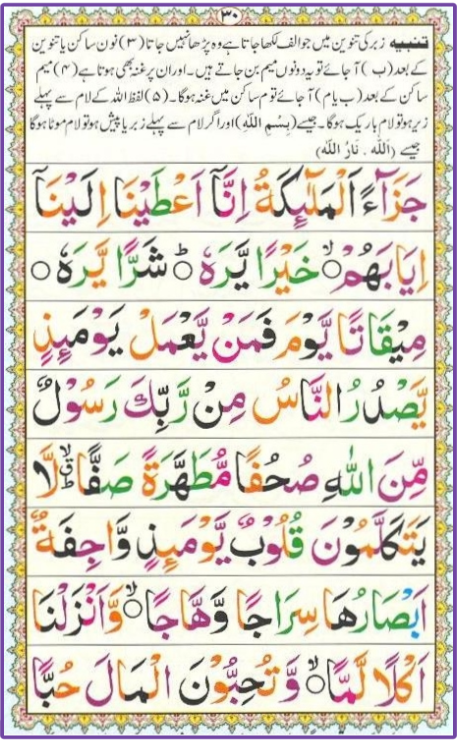 ۳۰
تنبیہ زبر کی تنوین میں جو الف لکھا جاتا ہے وہ پڑھا نہیں جاتا (۳) نون ساکن یا تنوین
کے بعد (ب) آ جائے تو یہ دونوں میم بن جاتے ہیں۔ اور ان پر غنہ بھی ہوتا ہے (۴) میم
ساکن کے بعد (ب یا م) آ جائے تو م ساکن میں غنہ ہوگا۔ (۵) لفظ اللہ کے لام سے پہلے
زیر ہو تو لام باریک ہوگا۔ جیسے (بِسْمِ اللّٰهِ) اور اگر لام سے پہلے زبر یا پیش ہو تو لام موٹا ہوگا
جیسے (اَللّٰهُ . نَارُ اللّٰهِ)
جَزَآءً اَلْمَلٰٓئِكَةُ اِنَّآ اَعْطَيْنَا اِلَيْنَآ
اِيَابَهُمْ ۙ○ خَيْرًا يَّرَهٗ ؕ○ شَرًّا يَّرَهٗ ○
مِيْقَاتًا يَّوْمَ فَمَنْ يَّعْمَلْ يَوْمَئِذٍ
يَّصْدُرُ النَّاسُ مِنْ رَّبِّكَ رَسُوْلٌ
مِّنَ اللّٰهِ صُحُفًا مُّطَهَّرَةً صَفًّا لَّا
يَتَكَلَّمُوْنَ قُلُوْبٌ يَّوْمَئِذٍ وَّاجِفَةٌ
اَبْصَارُهَا سِرَاجًا وَّهَّاجًا ۙ○ وَّاَنْزَلْنَا
اَكْلًا لَّمًّا ۙ○ وَّ تُحِبُّوْنَ الْمَالَ حُبًّا